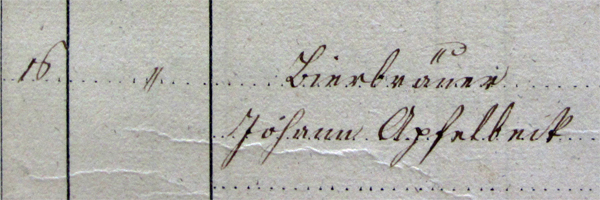 16 " Bierbräuer
Johann Apfelbeck